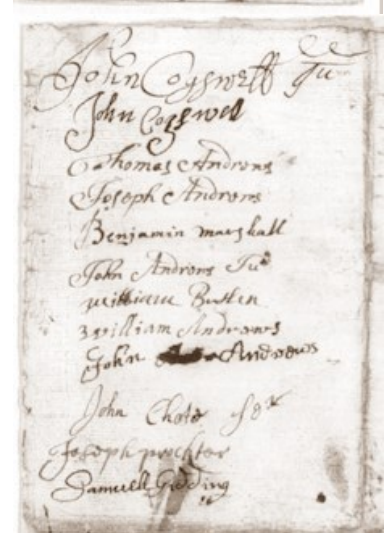 John Cogswell Ju
John Cogswell
Thomas Andrews
Joseph Andrews
Benjamin marshall
John Andrews Jur
william Butler
william Andrews
John Andrews
John Chote Ser
Joseph prockter
Samuell Gidding